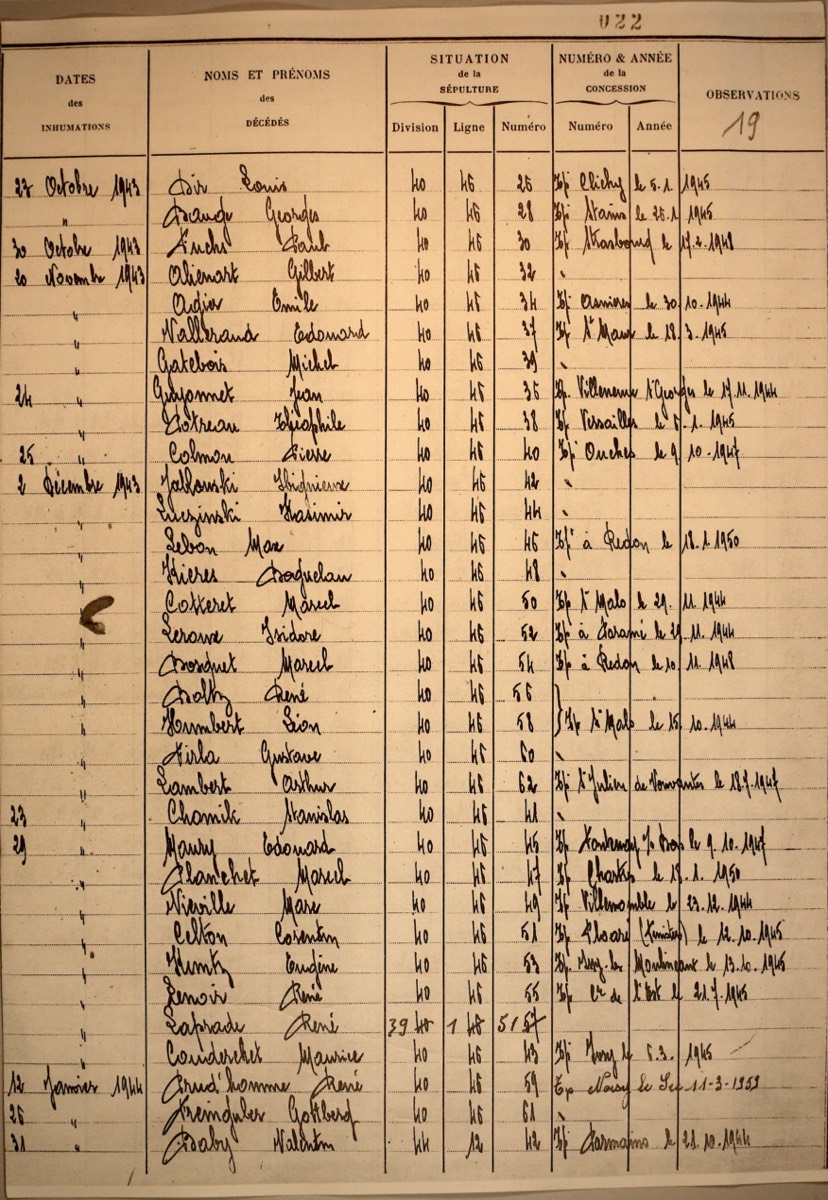 022
DATES des INHUMATIONS
NOMS ET PRÉNOMS des DÉCÉDÉS
SITUATION de la SÉPULTURE
NUMÉRO & ANNÉE de la CONCESSION
OBSERVATIONS
19
Division Ligne Numéro Numéro Année
27 Octobre 1943 Dir Louis 40 46 26 Tp Clichy le 5.1.1945
" Dauge Georges 40 46 28 Tp Stains le 25.1 1945
30 Octobre 1943 Fuchs Paul 40 46 30 Tp Strasbourg le 17.2.1948
20 Novembre 1943 Alienart Gilbert 40 46 32 "
" Adier Emile 40 46 34 Tp Asnieres le 30.10.1944
" Vallerand Edouard 40 46 37 Tp St Maur le 18.3.1945
" Gatebois Michel 40 46 39 "
24 " Guyonnet Jean 40 46 36 Tp. Villeneuve St Georges le 17.11.1944
" Potreau Théophile 40 46 38 Tp Versailles le 5.1.1945
25 " Colmon Pierre 40 46 40 Tp Ouches le 9.10.1947
2 Décembre 1943 Jablowski 40 46 42 "
" Luczinski Kasimir 40 46 44 "
" Lebon Max 40 46 46 Tpt à Redon le 18.1.1950
" 40 46 48 "
" Cotteret Marcel 40 46 50 Tp St Malo le 29.11.1944
" Leroux Isidore 40 46 52 Tp à Paramé le 29.11.1944
" Bosquet Marcel 40 46 54 Tp à Redon le 10.11.1948
" Boltz René 40 46 56
" Humbert Léon 40 46 58 } Tp St Malo le 15.10.1944
" Firla Gustave 40 46 60 "
" Lambert Arthur 40 46 62 Tp St Julien de Vouvantes le 18.7.1947
23 " Chamik Stanislas 40 46 41 "
29 " Maury Edouard 40 46 45 Tp Fontenay s/ Bois le 9.10.1947
" Planchet Marcel 40 46 47 Tp le 18.1.1950
" Nieville Marc 40 46 49 Tp Villemomble le 23.12.1944
" Celton Corentin 40 46 51 Tp Ploaré (Finistère) le 12.10.1945
" Kuntz Eugène 40 46 53 Tp. Issy-les Moulineaux le 13.10.1945
" Lenoir René 40 46 55 Tp Cre de l'Est le 21.7.1945
" Laprade René 39 40 1 46 51 57
" Couderchet Maurice 40 46 43 Tp Ivry le 6.3.1945
12 Janvier 1944 Prud'homme René 40 46 59 Tp Noisy le Sec 11-3-1959
26 " Freinguber Gottberg 40 46 61 "
31 " Baby Valentin 44 12 42 Tp Parmains le 21.10.1944